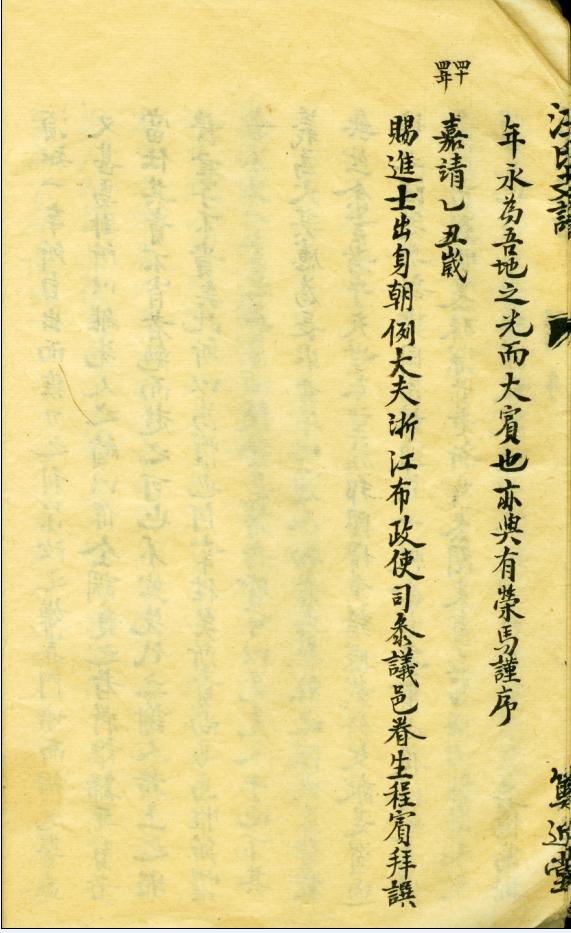 汪氏支譜
篤近堂
年永為吾地之光而大賓也亦與有榮馬謹序
四十四年
嘉請乙丑歲
賜進士出身朝例大夫浙江布政使司叅議邑眷生程賓拜譔